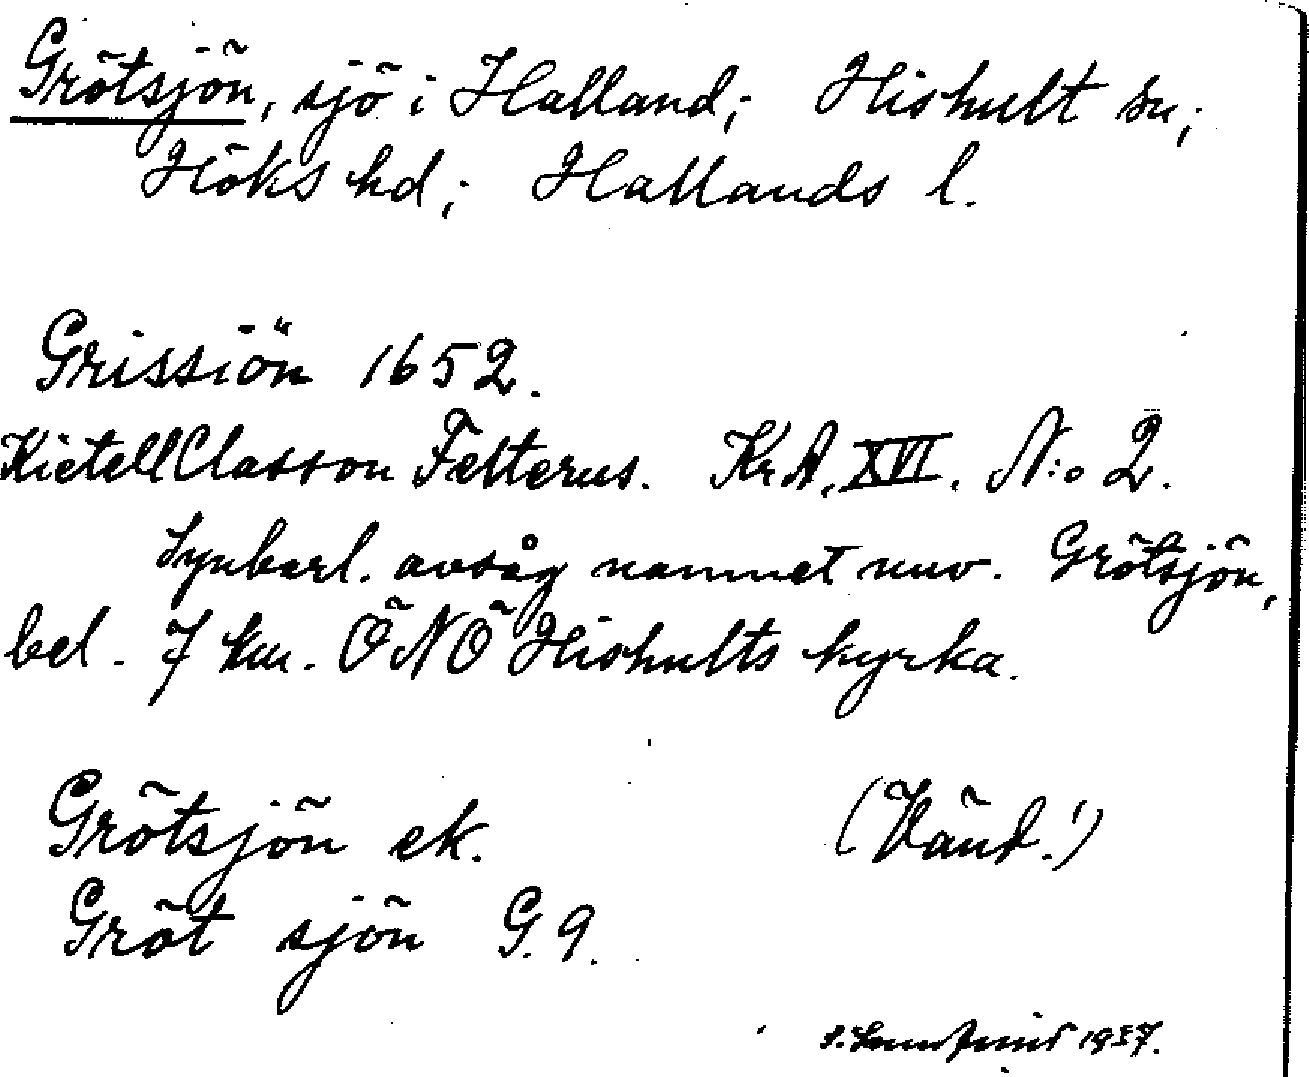 Grötsjön, sjö i Halland; Hishult sn;
Höks hd; Hallands l.
Grissiön 1652.
Kietell Classon Felterus. KrA, XVI. N:o 2.
Synbarl. avsåg namnet nuv. Grötsjön,
bel. 7 km. ÖNÖ Hishults kyrka.
Grötsjön ek. (Vänd!)
Gröt sjön G. 9.
1937.